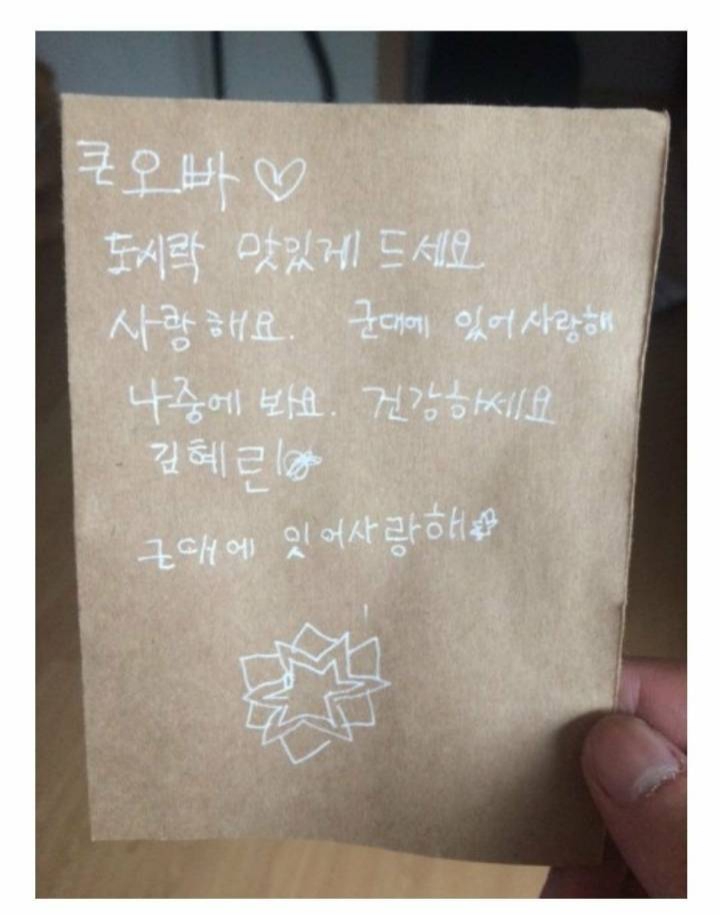 큰오빠♡
도시락 맛있게 드세요
사랑해요. 군대에 있어사랑해
나중에 봐요. 건강하세요
김혜린
군대에 있어사랑해